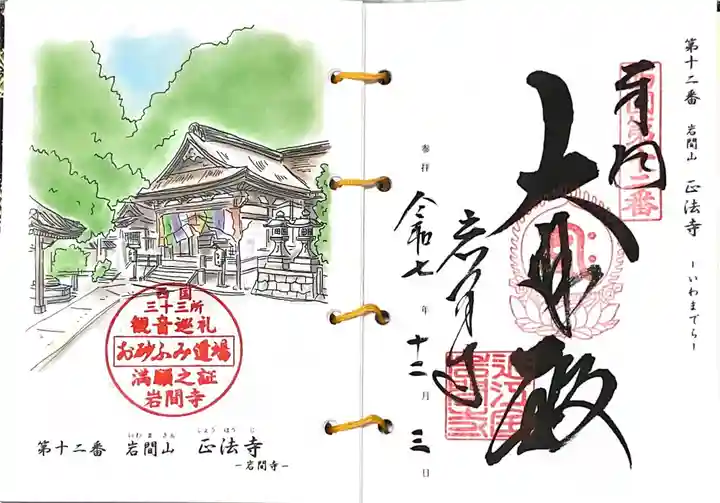 西国
三十三所
観音巡礼
お砂ふみ道場
満願之証
岩間寺
第十二番 岩間山 正法寺
いわまさん しょうほうじ
－岩間寺－
第十二番 岩間山 正法寺 －いわまでら－
西国第十二番
奉拝
大悲殿
岩间寺
参拝
令和七年十二月三日